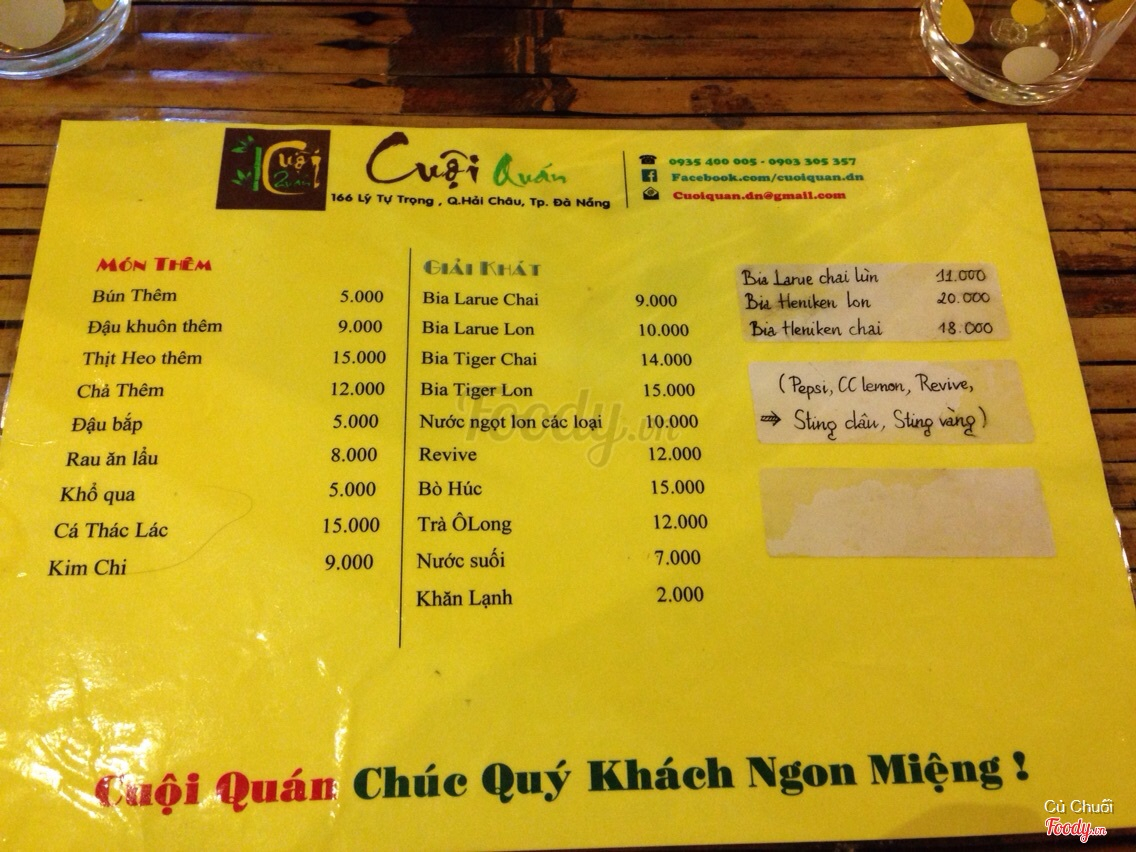 Cuội
Quán
Cuội Quán
166 Lý Tự Trọng , Q.Hải Châu, Tp. Đà Nẵng
0935 400 005 - 0903 305 357
Facebook.com/cuoiquan.dn
Cuoiquan.dn@gmail.com
MÓN THÊM
Bún Thêm 5.000
Đậu khuôn thêm 9.000
Thịt Heo thêm 15.000
Chả Thêm 12.000
Đậu bắp 5.000
Rau ăn lẩu 8.000
Khổ qua 5.000
Cá Thác Lác 15.000
Kim Chi 9.000
GIẢI KHÁT
Bia Larue Chai 9.000
Bia Larue Lon 10.000
Bia Tiger Chai 14.000
Bia Tiger Lon 15.000
Nước ngọt lon các loại 10.000
Revive 12.000
Bò Húc 15.000
Trà ÔLong 12.000
Nước suối 7.000
Khăn Lạnh 2.000
Bia Larue chai lùn 11.000
Bia Heniken lon 20.000
Bia Heniken chai 18.000
(Pepsi, CC lemon, Revive,
⇒ Sting dâu, Sting vàng)
Foody.vn
Cuội Quán Chúc Quý Khách Ngon Miệng !
Củ Chuối
Foody.vn